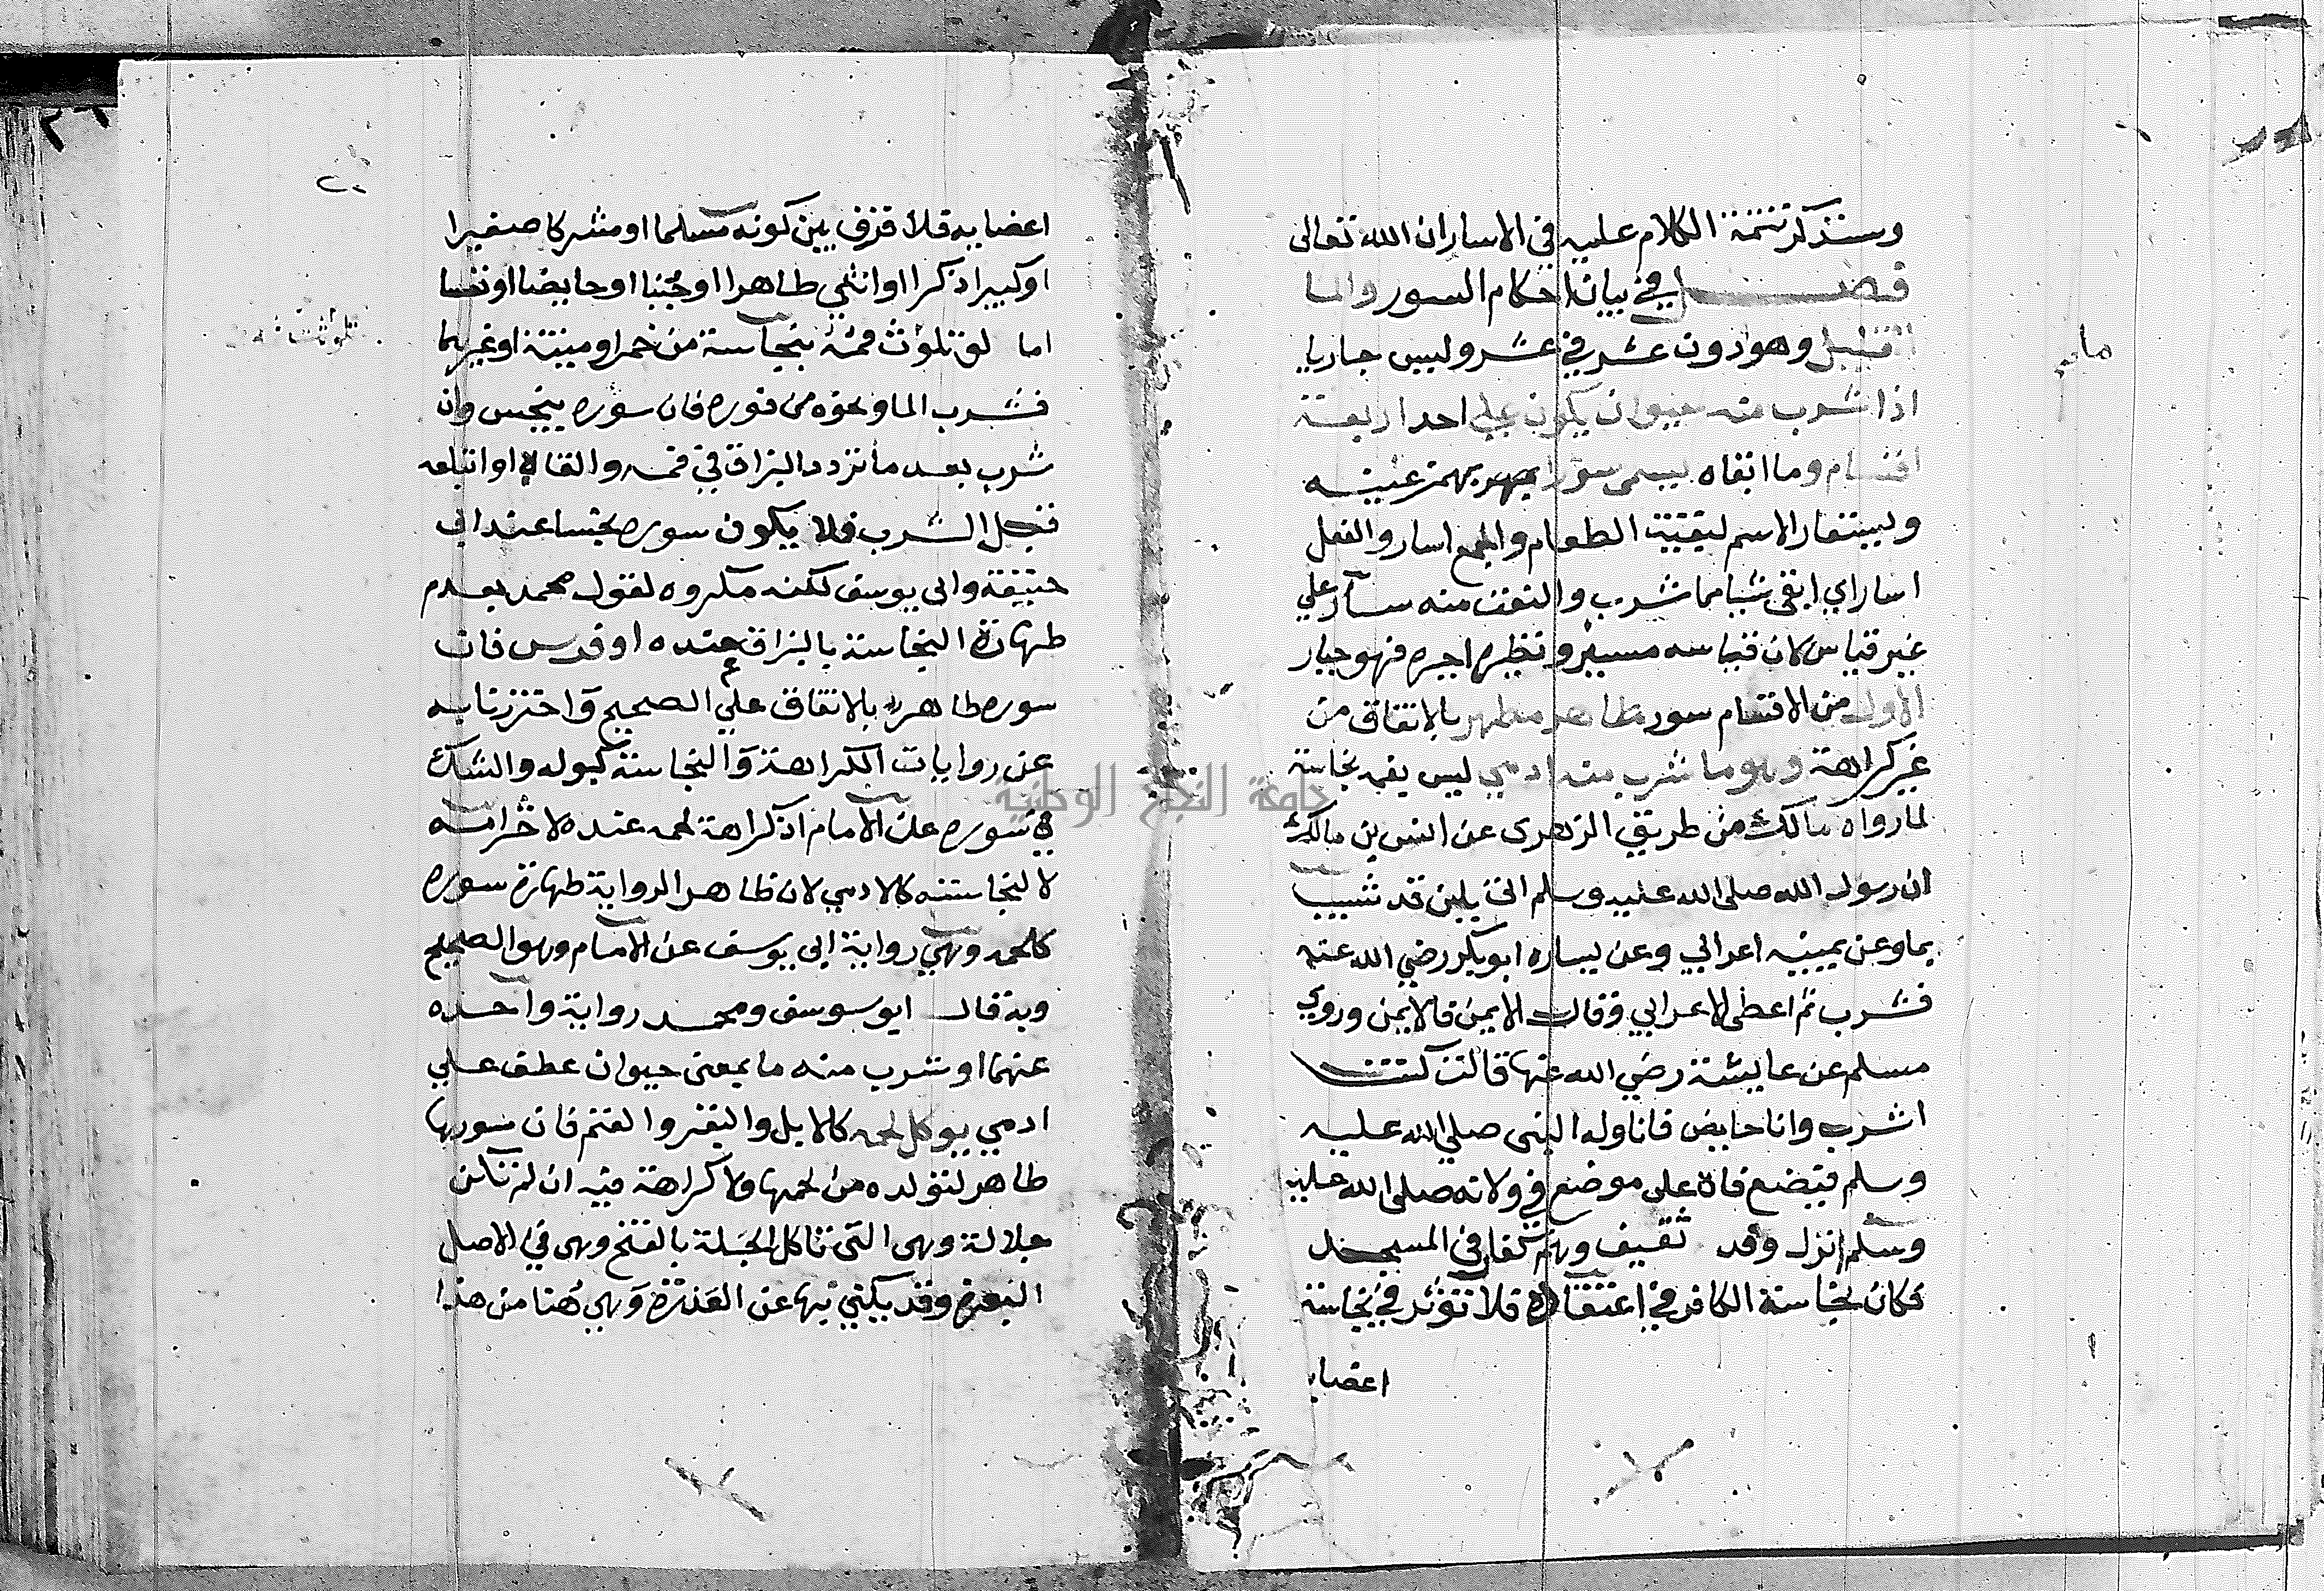 وسنذكر تتمة الكلام عليه في الاسار ان الله تعالى
فصل في بيان احكام السور والما
القليل وهو دون عشر في عشر وليس جاريا
اذا شرب منه حيوان يكون على احد اربعة
اقسام وما ابقاه يسمى سورا بهمز عينه
ويستعار الاسم لبقية الطعام والجمع اسار والفعل
اسار اي ابقى شيا مما شرب والنعت منه سآر على
غير قياس لان قياسه مسير ونظيره اجبره فهو جبار
الاول من الاقسام سور طاهر مطهر بالاتفاق من
غير كراهة وهو ما شرب منه ادمي ليس بفمه نجاسة
لما رواه مالك من طريق الزهري عن انس بن مالك
ان رسول الله صلى الله عليه وسلم اتى بلبن قد شيب
بما وعن يمينه اعرابي وعن يساره ابو بكر رضي الله عنه
فشرب ثم اعطى الاعرابي وقال الايمن فالايمن وروي
مسلم عن عايشة رضي الله عنها قالت كنت
اشرب وانا حايض فاناوله النبي صلى الله عليه
وسلم فيضع فاه على موضع في ولانه صلى الله عليه
وسلم انزل وفد ثقيف وهم كفار في المسجد
فكان نجاسة الكافر في اعتقاده فلا تؤثر في نجاسة
اعضاب
ماء
اعضايه فلا فرق بين كونه مسلما او مشركا صغيرا
او كبيرا ذكرا او انثى طاهرا او جنبا او حايضا او نفسا
اما لو تلوث فمه بنجاسة من خمر او ميتة او غيرهما
فشرب الما ونحوه من فوره فان سوره ينجس وان
شرب بعد ما تردد البزاق في فمه والقاه او ابتلعه
قبل الشرب فلا يكون سوره نجسا عند ابي
حنيفة وابى يوسف لكنه مكروه لقول محمد بعدم
طهارة النجاسة بالبزاق عنده او فرس فان
سوره طاهر بالاتفاق على الصحيح واحترزنا به
عن روايات الكراهة والنجاسة كبوله والشك
في سوره عن الامام اذ كراهة لحمه عنده لاحترامه
لا لنجاسته كالادمي لان ظاهر الرواية طهارة سوره
كلحمه وهي رواية ابى يوسف عن الامام وهو الصحيح
وبه قال ابو سوسف ومحمد رواية واحده
عنهما او شرب منه ما بمعنى حيوان عطف على
ادمي يوكل لحمه كالابل والبقر والغنم فان سورها
طاهر لتولده من لحمها ولا كراهة فيه ان لم تكن
جلالة وهى التى تاكل الجلة بالفتح وهى في الاصل
البعرة وقد يكنى بها عن العذرة وهي هنا من هذا
جامعة النجاح الوطنية